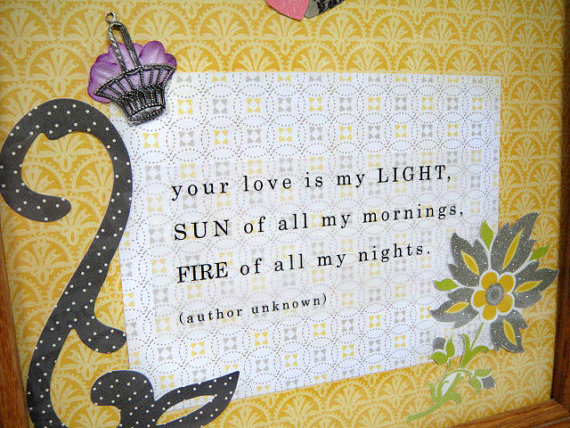 your love is my LIGHT,
SUN of all my mornings,
FIRE of all my nights.
(author unknown)